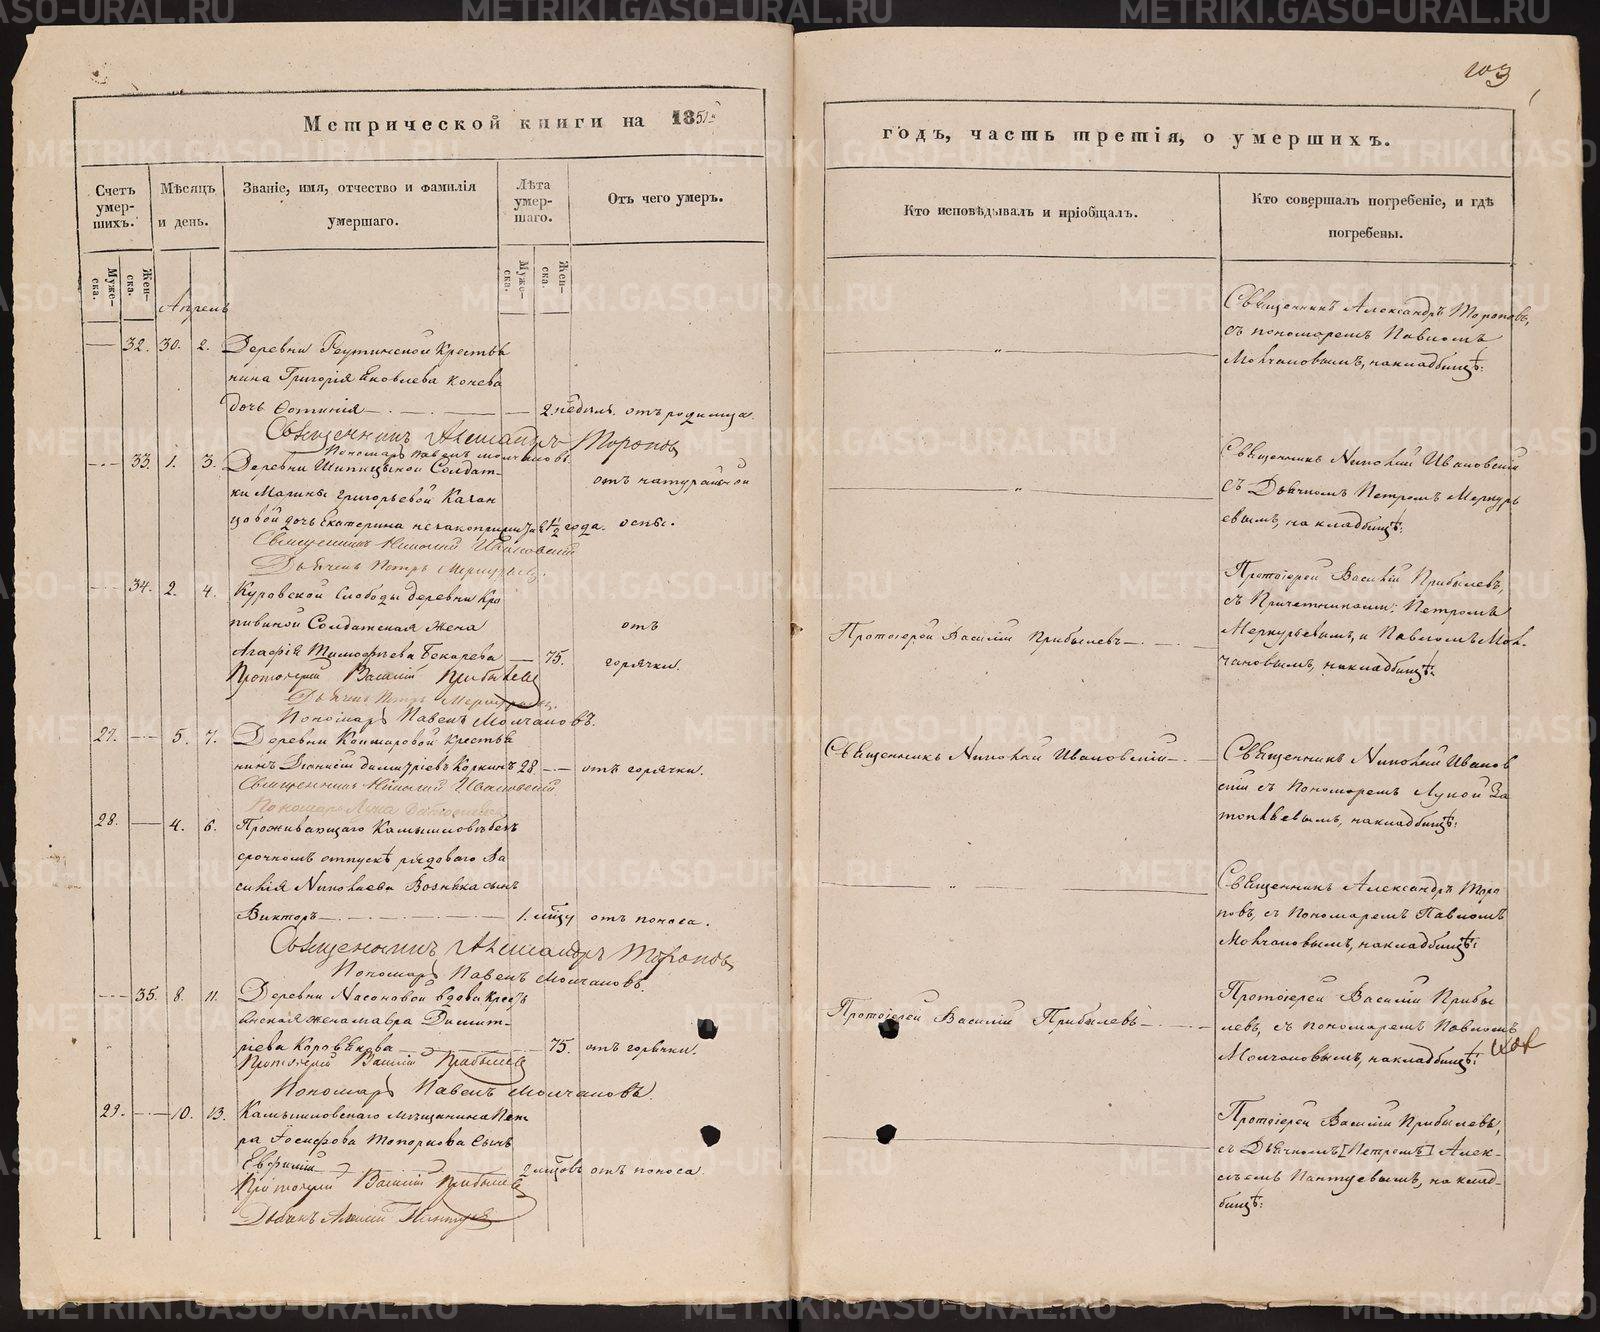 103
Метрической книги на 1851й
годъ, часть третія, о умершихъ.
Счетъ умер-
шихъ.
Мѣсяцъ
и день.
Званіе, имя, отчество и фамилія
умершаго.
Лѣта
умер-
шаго.
Отъ чего умеръ.
Кто исповѣдывалъ и пріобщалъ.
Кто совершалъ погребеніе, и гдѣ
погребены.
Муже-
ска.
Жен-
ска.
Муже-
ска.
Жен-
ска.
Апрель
32. 30. 2. Деревни Реутинской Крестья
нина Григорія Яковлева Конева
дочь Фотинія 2. недѣль. отъ родимца.
Священникъ Александръ Торопов
Пономарь Павелъ Молчановъ.
Священникъ Александръ Тороповъ,
съ пономаремъ Павломъ
Молчановымъ, на кладбищѣ.
33. 1. 3. Деревни Шипицыной Солдат-
ки Марины Григорьевой Казан
цовой дочь Екатерина незаконнорожденная 1/2 года.
отъ натуральной
оспы.
Священникъ Николай Ивановскій
Дьячекъ Петръ Меркурьевъ.
Священникъ Николай Ивановскій
съ Дьячкомъ Петромъ Меркурь
евымъ, на кладбищѣ.
34. 2. 4. Куровской Слободы деревни Кро
пивиной Солдатская жена
Агафія Тимофеева Бекарева 75.
отъ
горячки.
Протоіерей Василій Прибылевъ
Дьячекъ Петръ Меркурьевъ.
Пономарь Павелъ Молчановъ.
Протоіерей Василій Прибылевъ
Протоіерей Василій Прибылевъ,
съ Причетниками: Петромъ
Меркурьевымъ, и Павломъ Мол-
чановымъ, на кладбищѣ.
27. 5. 7. Деревни Кашкаровой крестья
нинъ Діонисій Димитріевъ Коркинъ 28 отъ горячки.
Священникъ Николай Ивановскій
Пономарь Лука
Священникъ Николай Ивановскій
Священникъ Николай Иванов
скій съ Пономаремъ Лукой За
топляевымъ, на кладбищѣ.
28. 4. 6. Проживающаго Камышловѣ без
срочномъ отпускѣ рядоваго Ва
силія Николаева Вознька сынъ
Викторъ 1. мцу отъ поноса.
Священникъ Александръ Торопов
Пономарь Павелъ Молчановъ.
Священникъ Александръ Торо
повъ, съ Пономаремъ Павломъ
Молчановымъ, на кладбищѣ.
35. 8. 11. Деревни Насоновой вдова крестъ
янская жена Мавра Димит-
ріева Коровякова 75. отъ горячки.
Протоіерей Василій Прибылевъ
Пономарь Павелъ Молчановъ.
Протоіерей Василій Прибылевъ
Протоіерей Василій Прибы
левъ, съ пономаремъ Павломъ
Молчановымъ, на кладбищѣ.
29. 10. 13. Камышловскаго мѣщанина Пет
ра Іосифова Топоркова сынъ
Евфимій 2 мцовъ отъ поноса.
Протоіерей Василій Прибылевъ
Дьячекъ Алексій Пантуевъ
Протоіерей Василій Прибылевъ,
съ Дьячкомъ [Петромъ] Алек-
сѣемъ Пантуевымъ, на клад-
бищѣ.